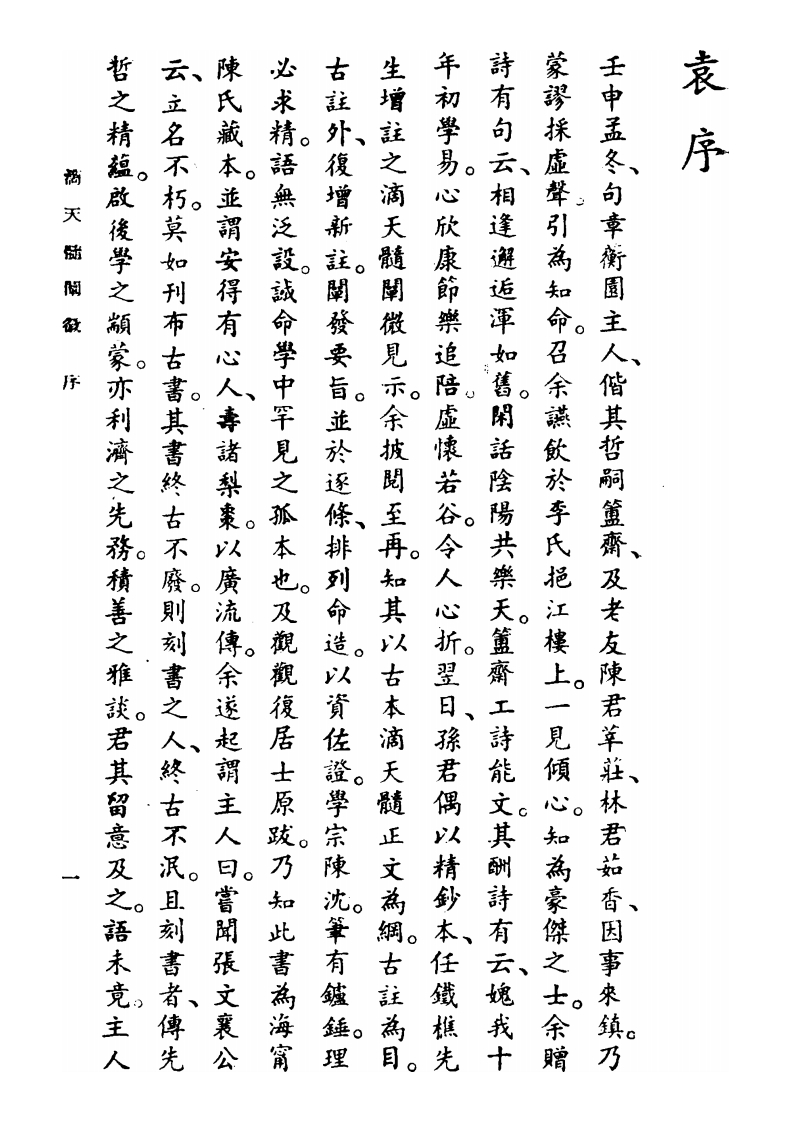 袁序
壬申孟冬、句章衡園主人、偕其哲嗣簠齋、及老友陳君莘莊、林君茹香、因事來鎮。乃
蒙謬採虛聲。引為知命。召余讌飲於李氏挹江樓上。一見傾心。知為豪傑之士。余贈
詩有句云、相逢邂逅渾如舊。閑話陰陽共樂天。簠齋工詩能文。其酬詩有云、媿我十
年初學易。心欣康節樂追陪。虛懷若谷。令人心折。翌日、孫君偶以精鈔本、任鐵樵先
生增註之滴天髓闡微見示。余披閱至再。知其以古本滴天髓正文為綱。古註為目。
古註外、復增新註。闡發要旨。並於逐條、排列命造。以資佐證。學宗陳沈。筆有鑪錘。理
必求精。語無泛設。誠命學中罕見之孤本也。及觀觀復居士原跋。乃知此書為海甯
陳氏藏本。並謂安得有心人、壽諸梨棗。以廣流傳。余遂起謂主人曰。嘗聞張文襄公
云、立名不朽。莫如刊布古書。其書終古不廢。則刻書之人、終古不泯。且刻書者、傳先
哲之精蘊。啟後學之顓蒙。亦利濟之先務。積善之雅談。君其留意及之。語未竟。主人
滴天髓闡微 序
一